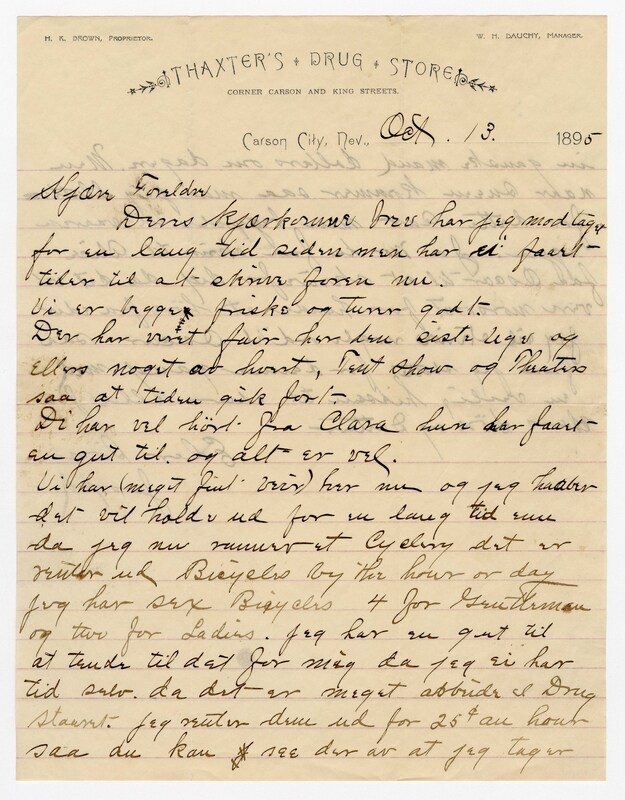 H. K. BROWN, PROPRIETOR.
W. H. DAUCHY, MANAGER.
THAXTER'S DRUG STORE
CORNER CARSON AND KING STREETS.
Carson City, Nev., Oct. 13. 1895
Kjære Foreldre
Deres kjærkomne brev har jeg modtaget
for en lang tid siden men har ei faaet
tider til at skrive foren nu.
Vi er begge friske og turer godt.
Der har veret fair her den siste uge og
ellers noget av hvert, Tent show og Theaters
saa at tiden gik fort.
Di har vel hört fra Clara hun har faaet
en gut til. og alt er vel.
Vi har meget fint veir her nu og jeg haaber
det vil holde ud for en lang tid enu
da jeg nu runner et Cyclery det er
renter ud Bicycles by the hour or day
jeg har sex Bicycles 4 for Gentleman
og two for Ladies. jeg har en gut til
at tende til dat for meg da jeg ei har
tid selv. da det er meget arbeide i Drug
staaret. jeg renter dem ud for 25¢ an hour
saa du kan see der av at jeg tager